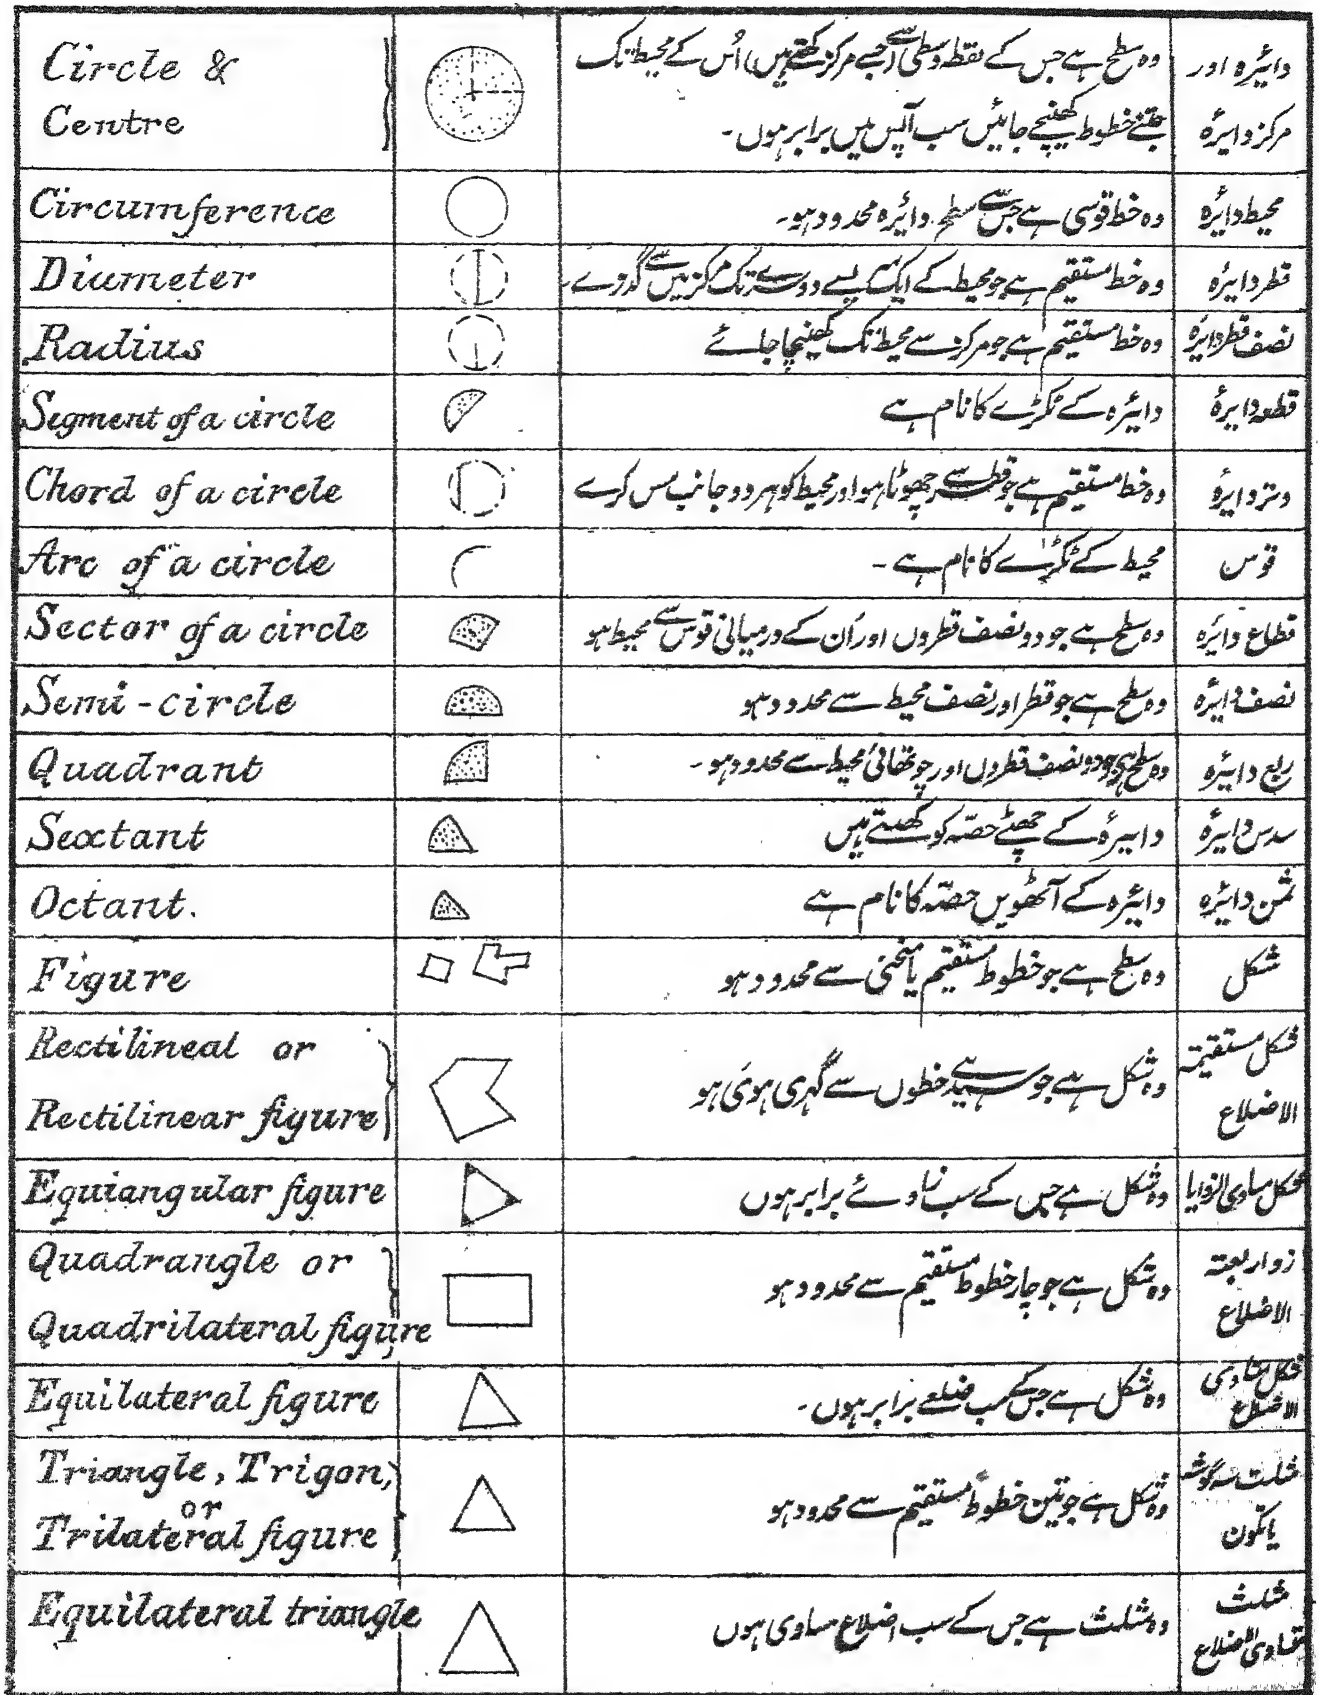 Circle &
Centre
وہ سطح ہے جس کے نقطہ وسطی سے (جسے مرکز کہتے ہیں) اُس کے محیط تک
جتنے خطوط کھینچے جائیں سب آپس میں برابر ہوں۔
دائیرہ اور
مرکز دایرہٴ
Circumference
وہ خط قوسی ہے جس سے سطح دائیرہ محدود ہو۔
محیط دایرہٴ
Diameter
وہ خط مستقیم ہے جو محیط کے ایک سے دوسرے تک مرکز میں سے گذرے۔
قطر دایرہٴ
Radius
وہ خط مستقیم ہے جو مرکز سے محیط تک کھینچا جائے
نصف قطر دایرہٴ
Segment of a circle
دائیرہ کے ٹکڑے کا نام ہے
قطعہ دایرہٴ
Chord of a circle
وہ خط مستقیم ہے جو قطر سے چھوٹا ہو اور محیط کو ہر دو جانب مس کرے
وتر دایرہٴ
Arc of a circle
محیط کے ٹکڑے کا نام ہے۔
قوس
Sector of a circle
وہ سطح ہے جو دو نصف قطروں اور اُن کے درمیانی قوس سے محیط ہو
قطاع دائرہ
Semi-circle
وہ سطح ہے جو قطر اور نصف محیط سے محدود ہو
نصف دایرہٴ
Quadrant
وہ سطح ہے جو دو نصف قطروں اور چوتھائی محیط سے محدود ہو۔
ربع دایرہٴ
Sextant
دایرہٴ کے چھٹے حصّہ کو کہتے ہیں
سدس دایرہٴ
Octant.
دائیرہ کے آٹھویں حصّہ کا نام ہے
ثمن دایرہٴ
Figure
وہ سطح ہے جو خطوط مستقیم یا منحنی سے محدود ہو
شکل
Rectilineal or
Rectilinear figure
وہ شکل ہے جو سیدھے خطوں سے گہری ہوئی ہو
شکل مستقیمتہ
الاضلاع
Equiangular figure
وہ شکل ہے جس کے سب زاوئے برابر ہوں
شکل مساوی الزوایا
Quadrangle or
Quadrilateral figure
وہ شکل ہے جو چار خطوط مستقیم سے محدود ہو
زواربعتہ
الاضلاع
Equilateral figure
وہ شکل ہے جس کے سب ضلعے برابر ہوں۔
شکل مساوی
الاضلاع
Triangle, Trigon,
or
Trilateral figure
وہ شکل ہے جو تین خطوط مستقیم سے محدود ہو
مثلث سہ گوشہ
یا تکون
Equilateral triangle
وہ مثلث ہے جس کے سب اضلاع مساوی ہوں
مثلث
متساوی الاضلاع